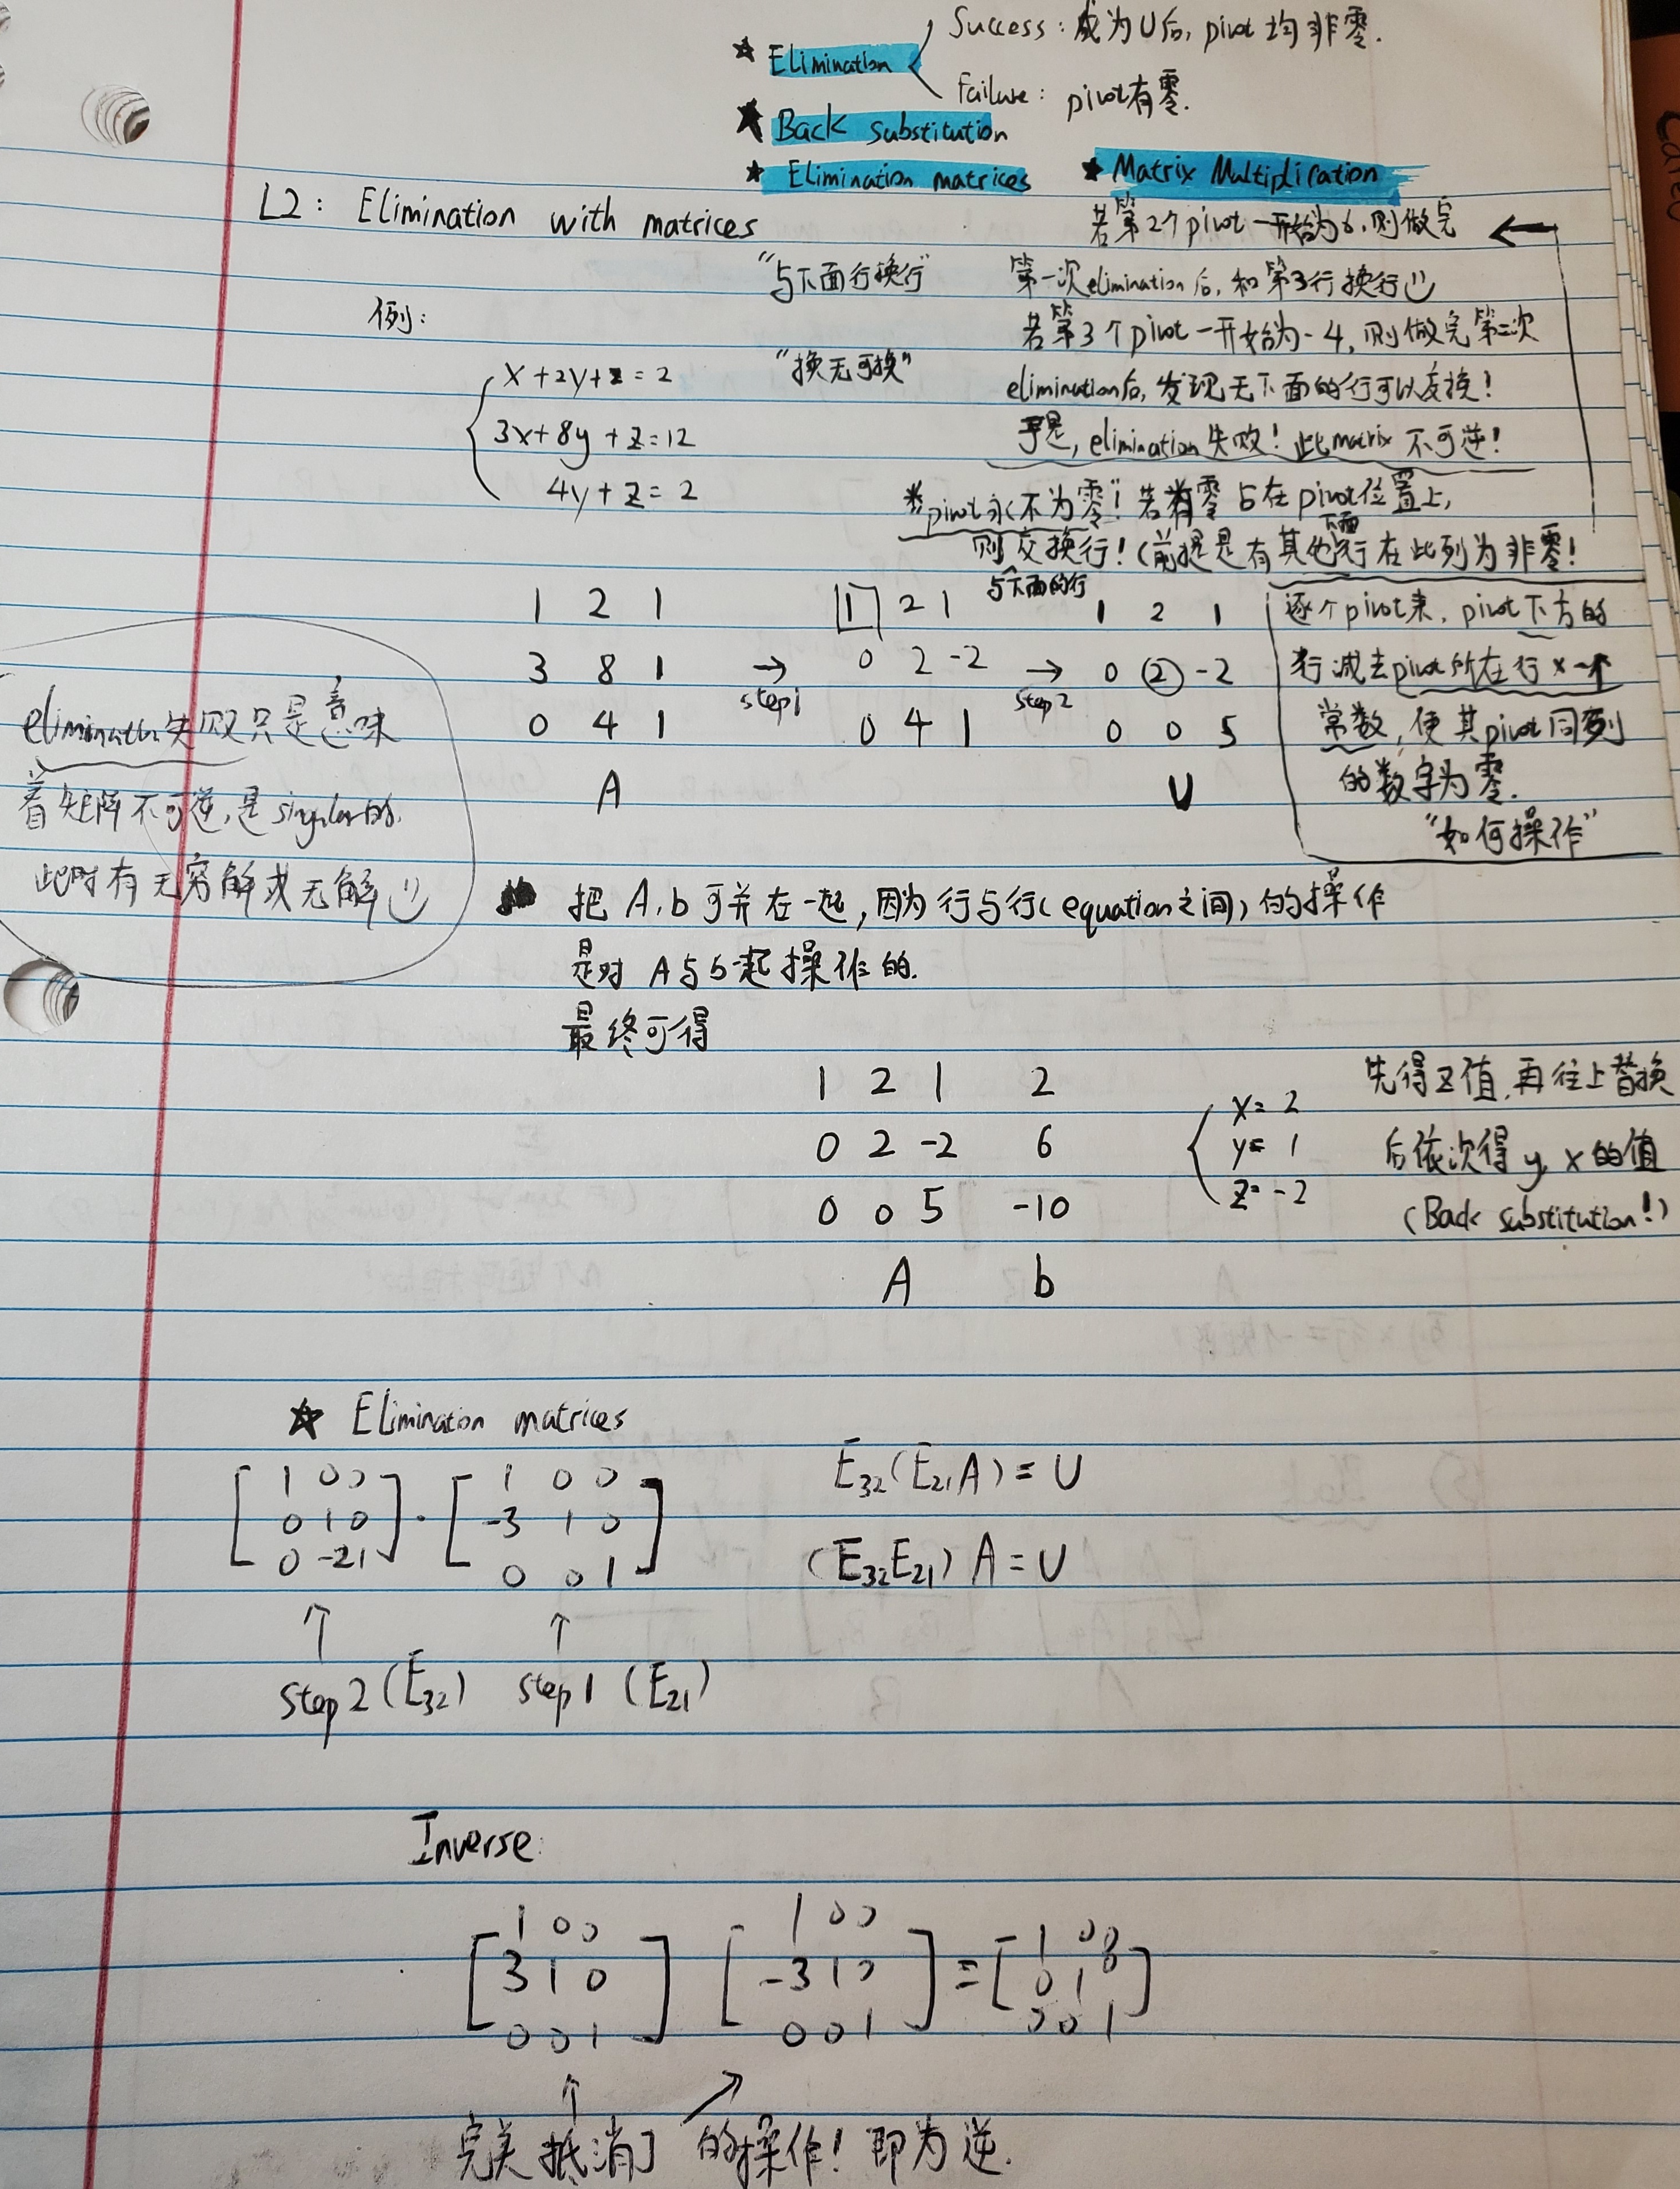 ★ Elimination
Success: 成为U后, pivot 均非零.
Failure: pivot有零.
★ Back substitution
★ Elimination matrices ★ Matrix Multiplication
L2: Elimination with matrices
若第2个pivot一开始为6,则做完
"与下面行换行" 第一次elimination后,和第3行换行
例:
若第3个pivot一开始为-4,则做完第二次
x+2y+z=2 "换无可换"
elimination后,发现无下面的行可以交换!
3x+8y+z=12
于是,elimination失败!此matrix不可逆!
4y+z=2
*pivot永不为零!若有零占在pivot位置上,
则交换行!(前提是有其他下面行在此列为非零!
与下面的行
1 2 1 1 2 1 1 2 1
3 8 1 → 0 2 -2 → 0 2 -2
step1 step2
0 4 1 0 4 1 0 0 5
A U
逐个pivot来,pivot下方的
行减去pivot所在行×一个
常数,使其pivot同列
的数字为零.
"如何操作"
elimination失败只是意味
着矩阵不可逆,是singular的.
此时有无穷解或无解
把A,b可并在一起,因为行与行(equation之间)的操作
是对A与b一起操作的.
最终可得
1 2 1 2
0 2 -2 6
0 0 5 -10
A b
x=2
y=1
z=-2
先得z值,再往上替换
后依次得y,x的值
(Back substitution!)
★ Elimination matrices
1 0 0 1 0 0
0 1 0 · -3 1 0
0 -2 1 0 0 1
E₃₂(E₂₁A)=U
(E₃₂E₂₁)A=U
↑ ↑
step2(E₃₂) step1(E₂₁)
Inverse:
1 0 0 1 0 0 1 0 0
3 1 0 -3 1 0 = 0 1 0
0 0 1 0 0 1 0 0 1
↑ ↗
完美抵消了 的操作!即为逆.